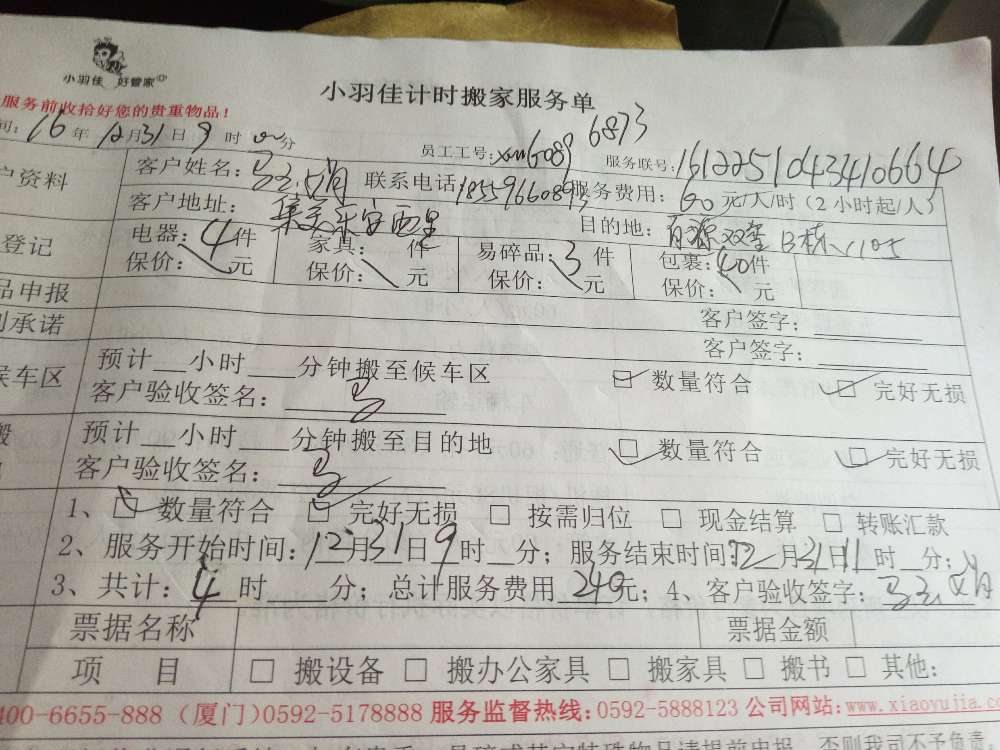 小羽佳 好管家
小羽佳计时搬家服务单
服务前收拾好您的贵重物品！
间：16年12月31日9时 分 员工工号：xm6089 6873 服务联号：161225104341066​4
户资料 客户姓名： 联系电话 服务费用：60元/人/时（2小时起/人）
客户地址：集美乐安西里 目的地：百源双玺B栋1105
登记 电器：4件 家具： 件 易碎品：3件 包裹：40件
保价： 元 保价： 元 保价： 元 保价： 元
品申报 客户签字：
承诺 客户签字：
候车区 预计 小时 分钟搬至候车区 数量符合 完好无损
客户验收签名：
搬 预计 小时 分钟搬至目的地 数量符合 完好无损
客户验收签名：
1、 数量符合 完好无损 按需归位 现金结算 转账汇款
2、服务开始时间：12月31日9时 分；服务结束时间：12月31日11时 分；
3、共计：4时 分；总计服务费用240元；4、客户验收签字：
票据名称 票据金额
项 目 搬设备 搬办公家具 搬家具 搬书 其他：
400-6655-888（厦门）0592-5178888 服务监督热线：0592-5888123 公司网站：www.xiaoyujia.com